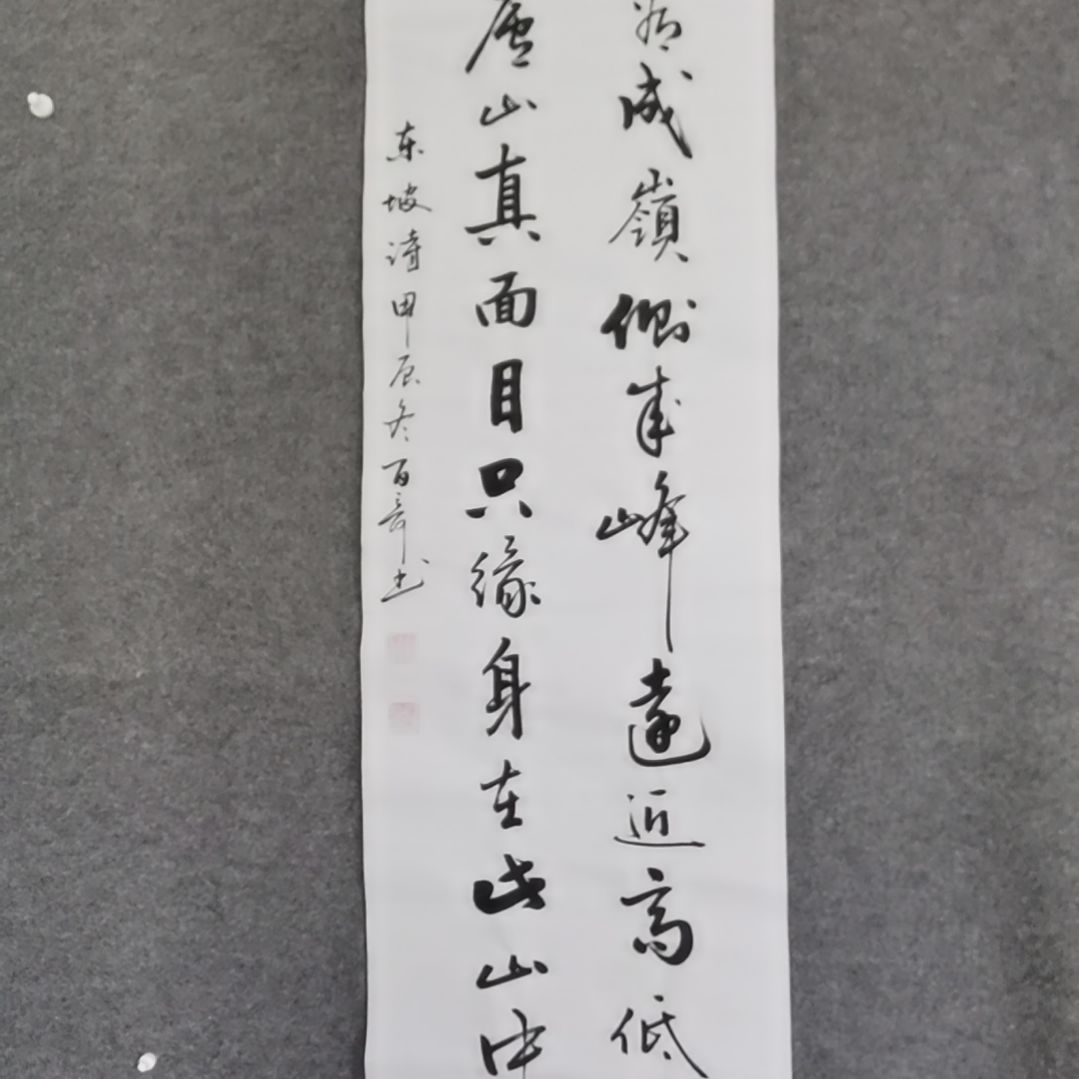 成嶺側成峰遠近高低
廬山真面目只緣身在此山中
东坡诗甲辰冬百
书